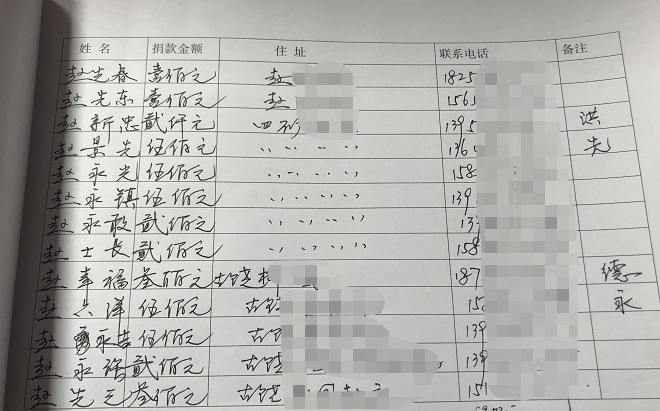 姓名 捐款金额 住址 联系电话 备注
赵先春 壹佰元 赵 1825
赵先东 壹佰元 赵 1561
赵新忠 贰仟元 四 1395 洪
赵景先 伍佰元 〃 〃 〃 〃 136 先
赵永光 伍佰元 〃 〃 〃 〃 158
赵永镇 伍佰元 〃 〃 〃 〃 139
赵永敢 贰佰元 〃 〃 〃 〃 13
赵士长 贰佰元 〃 〃 〃 〃 158
赵幸福 叁佰元 古饶 187 德
赵六洋 伍佰元 古饶 15 永
赵永吉 伍佰元 古饶 139
赵永 贰佰元 古饶 139
赵先 叁佰元 古饶 151